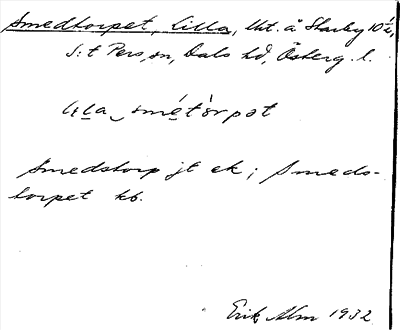 Smedtorpet, Lilla, lht. å Skarby 10 1/2,
S:t Pers sn, Dals hd, Österg. l.
lɩla smétòrpət
Smedstorp jt ek; Smeds-
torpet kb.
Erik Alm 1932